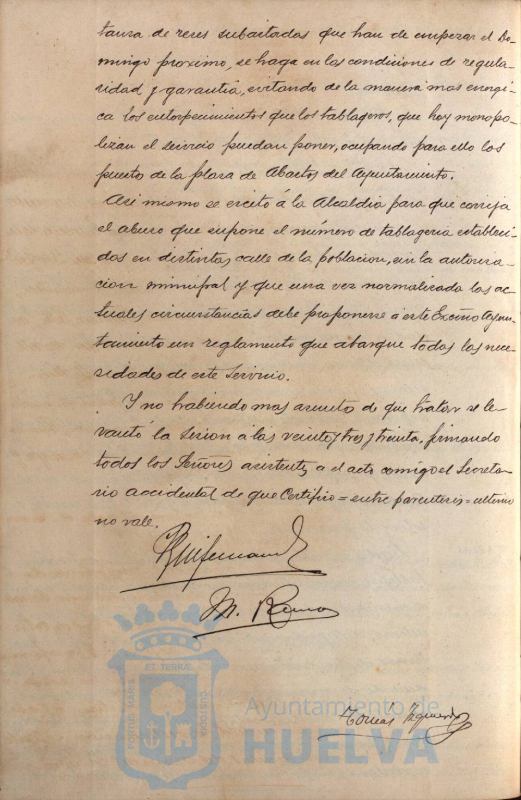 tanza de reses subastadas que han de empezar el Do-
mingo proximo, se haga en las condiciones de regula-
ridad y garantia, evitando de la manera mas energi-
ca los entorpecimientos que los tablageros, que hoy monopo-
lizan el servicio puedan poner, ocupando para ello los
puestos de la plaza de Abastos del Ayuntamiento.
Asi mismo se excitó á la Alcaldia para que corrija
el abuso que supone el número de tablageria estableci-
das en distintas calle de la poblacion, sin la autoriza-
cion municipal y que una vez normalizada las ac-
tuales circunstancias debe proponerse á este Excmo Ayun-
tamiento un reglamento que abarque todas las nece-
sidades de este Servicio.
Y no habiendo mas asunto de que tratar se le-
vantó la Sesion á las veinte y tres y treinta, firmando
todos los Señores asistentes a el acto comigo el Secreta-
rio accidental de que Certifico = entre parentesis = ultimo
no vale.
M.
Tomas Izquierdo
PORTUS MARIS ET TERRAE CUSTODIA
Ayuntamiento de
HUELVA